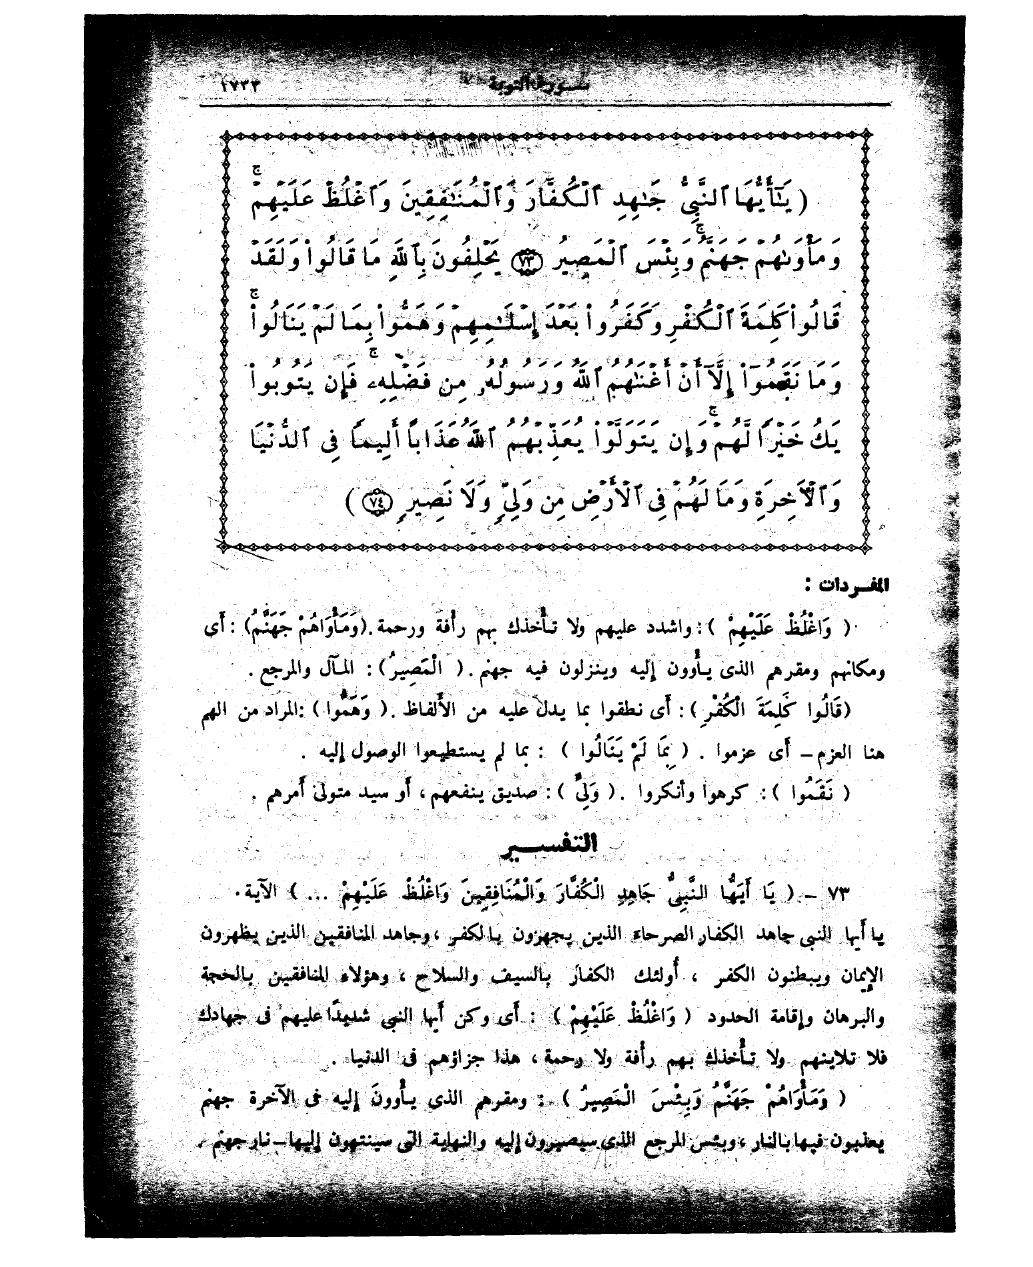 سورة التوبة ١٧٣٣
( يَٰٓأَيُّهَا ٱلنَّبِىُّ جَٰهِدِ ٱلْكُفَّارَ وَٱلْمُنَٰفِقِينَ وَٱغْلُظْ عَلَيْهِمْ ۚ
وَمَأْوَىٰهُمْ جَهَنَّمُ ۖ وَبِئْسَ ٱلْمَصِيرُ ٧٣ يَحْلِفُونَ بِٱللَّهِ مَا قَالُوا۟ وَلَقَدْ
قَالُوا۟ كَلِمَةَ ٱلْكُفْرِ وَكَفَرُوا۟ بَعْدَ إِسْلَٰمِهِمْ وَهَمُّوا۟ بِمَا لَمْ يَنَالُوا۟ ۚ
وَمَا نَقَمُوٓا۟ إِلَّآ أَنْ أَغْنَىٰهُمُ ٱللَّهُ وَرَسُولُهُۥ مِن فَضْلِهِۦ ۚ فَإِن يَتُوبُوا۟
يَكُ خَيْرًا لَّهُمْ ۖ وَإِن يَتَوَلَّوْا۟ يُعَذِّبْهُمُ ٱللَّهُ عَذَابًا أَلِيمًا فِى ٱلدُّنْيَا
وَٱلْءَاخِرَةِ ۚ وَمَا لَهُمْ فِى ٱلْأَرْضِ مِن وَلِىٍّ وَلَا نَصِيرٍ ٧٤ )
المفـردات :
( وَاغْلُظْ عَلَيْهِمْ ) : واشدد عليهم ولا تـأخذك بهم رأفة ورحمة . (وَمَأْوَاهُمْ جَهَنَّمُ) : أى
ومكانهم ومقرهم الذى يـأوون إليه وينزلون فيه جهنم . ( الْمَصِيرُ ) : المـآل والمرجع .
(قَالُوا كَلِمَةَ الْكُفْرِ ) : أى نطقوا بما يدل عليه من الألفاظ . ( وَهَمُّوا ) :المراد من الهم
هنا العزم – أى عزموا . ( بِمَا لَمْ يَنَالُوا ) : بما لم يستطيعوا الوصول إليه .
( نَقَمُوا ) : كرهوا وأنكروا . ( وَلِىٍّ ) : صديق ينفعهم ، أو سيد متولى أمرهم .
التفســير
٧٣ – ( يَا أَيُّهَا النَّبِىُّ جَاهِدِ الْكُفَّارَ وَالْمُنَافِقِينَ وَاغْلُظْ عَلَيْهِمْ ... ) الآية .
يا أيها النبى جاهد الكفار الصرحاء الذين يجهرون بالكفر ، وجاهد المنافقين الذين يظهرون
الإيمان ويبطنون الكفر ، أولئك الكفار بالسيف والسلاح ، وهؤلاء المنافقين بالحجة
والبرهان وإقامة الحدود ( وَاغْلُظْ عَلَيْهِمْ ) : أى وكن أيها النبى شديدًا عليهم فى جهادك
فلا تلاينهم ولا تـأخذك بهم رأفة ولا رحمة ، هذا جزاؤهم فى الدنيا .
( وَمَأْوَاهُمْ جَهَنَّمُ وَبِئْسَ الْمَصِيرُ ) : ومقرهم الذى يـأوون إليه فى الآخرة جهنم
يعذبون فيها بالنار ، وبئس المرجع الذى سيصيرون إليه والنهاية التى سينتهون إليها – نار جهنم .